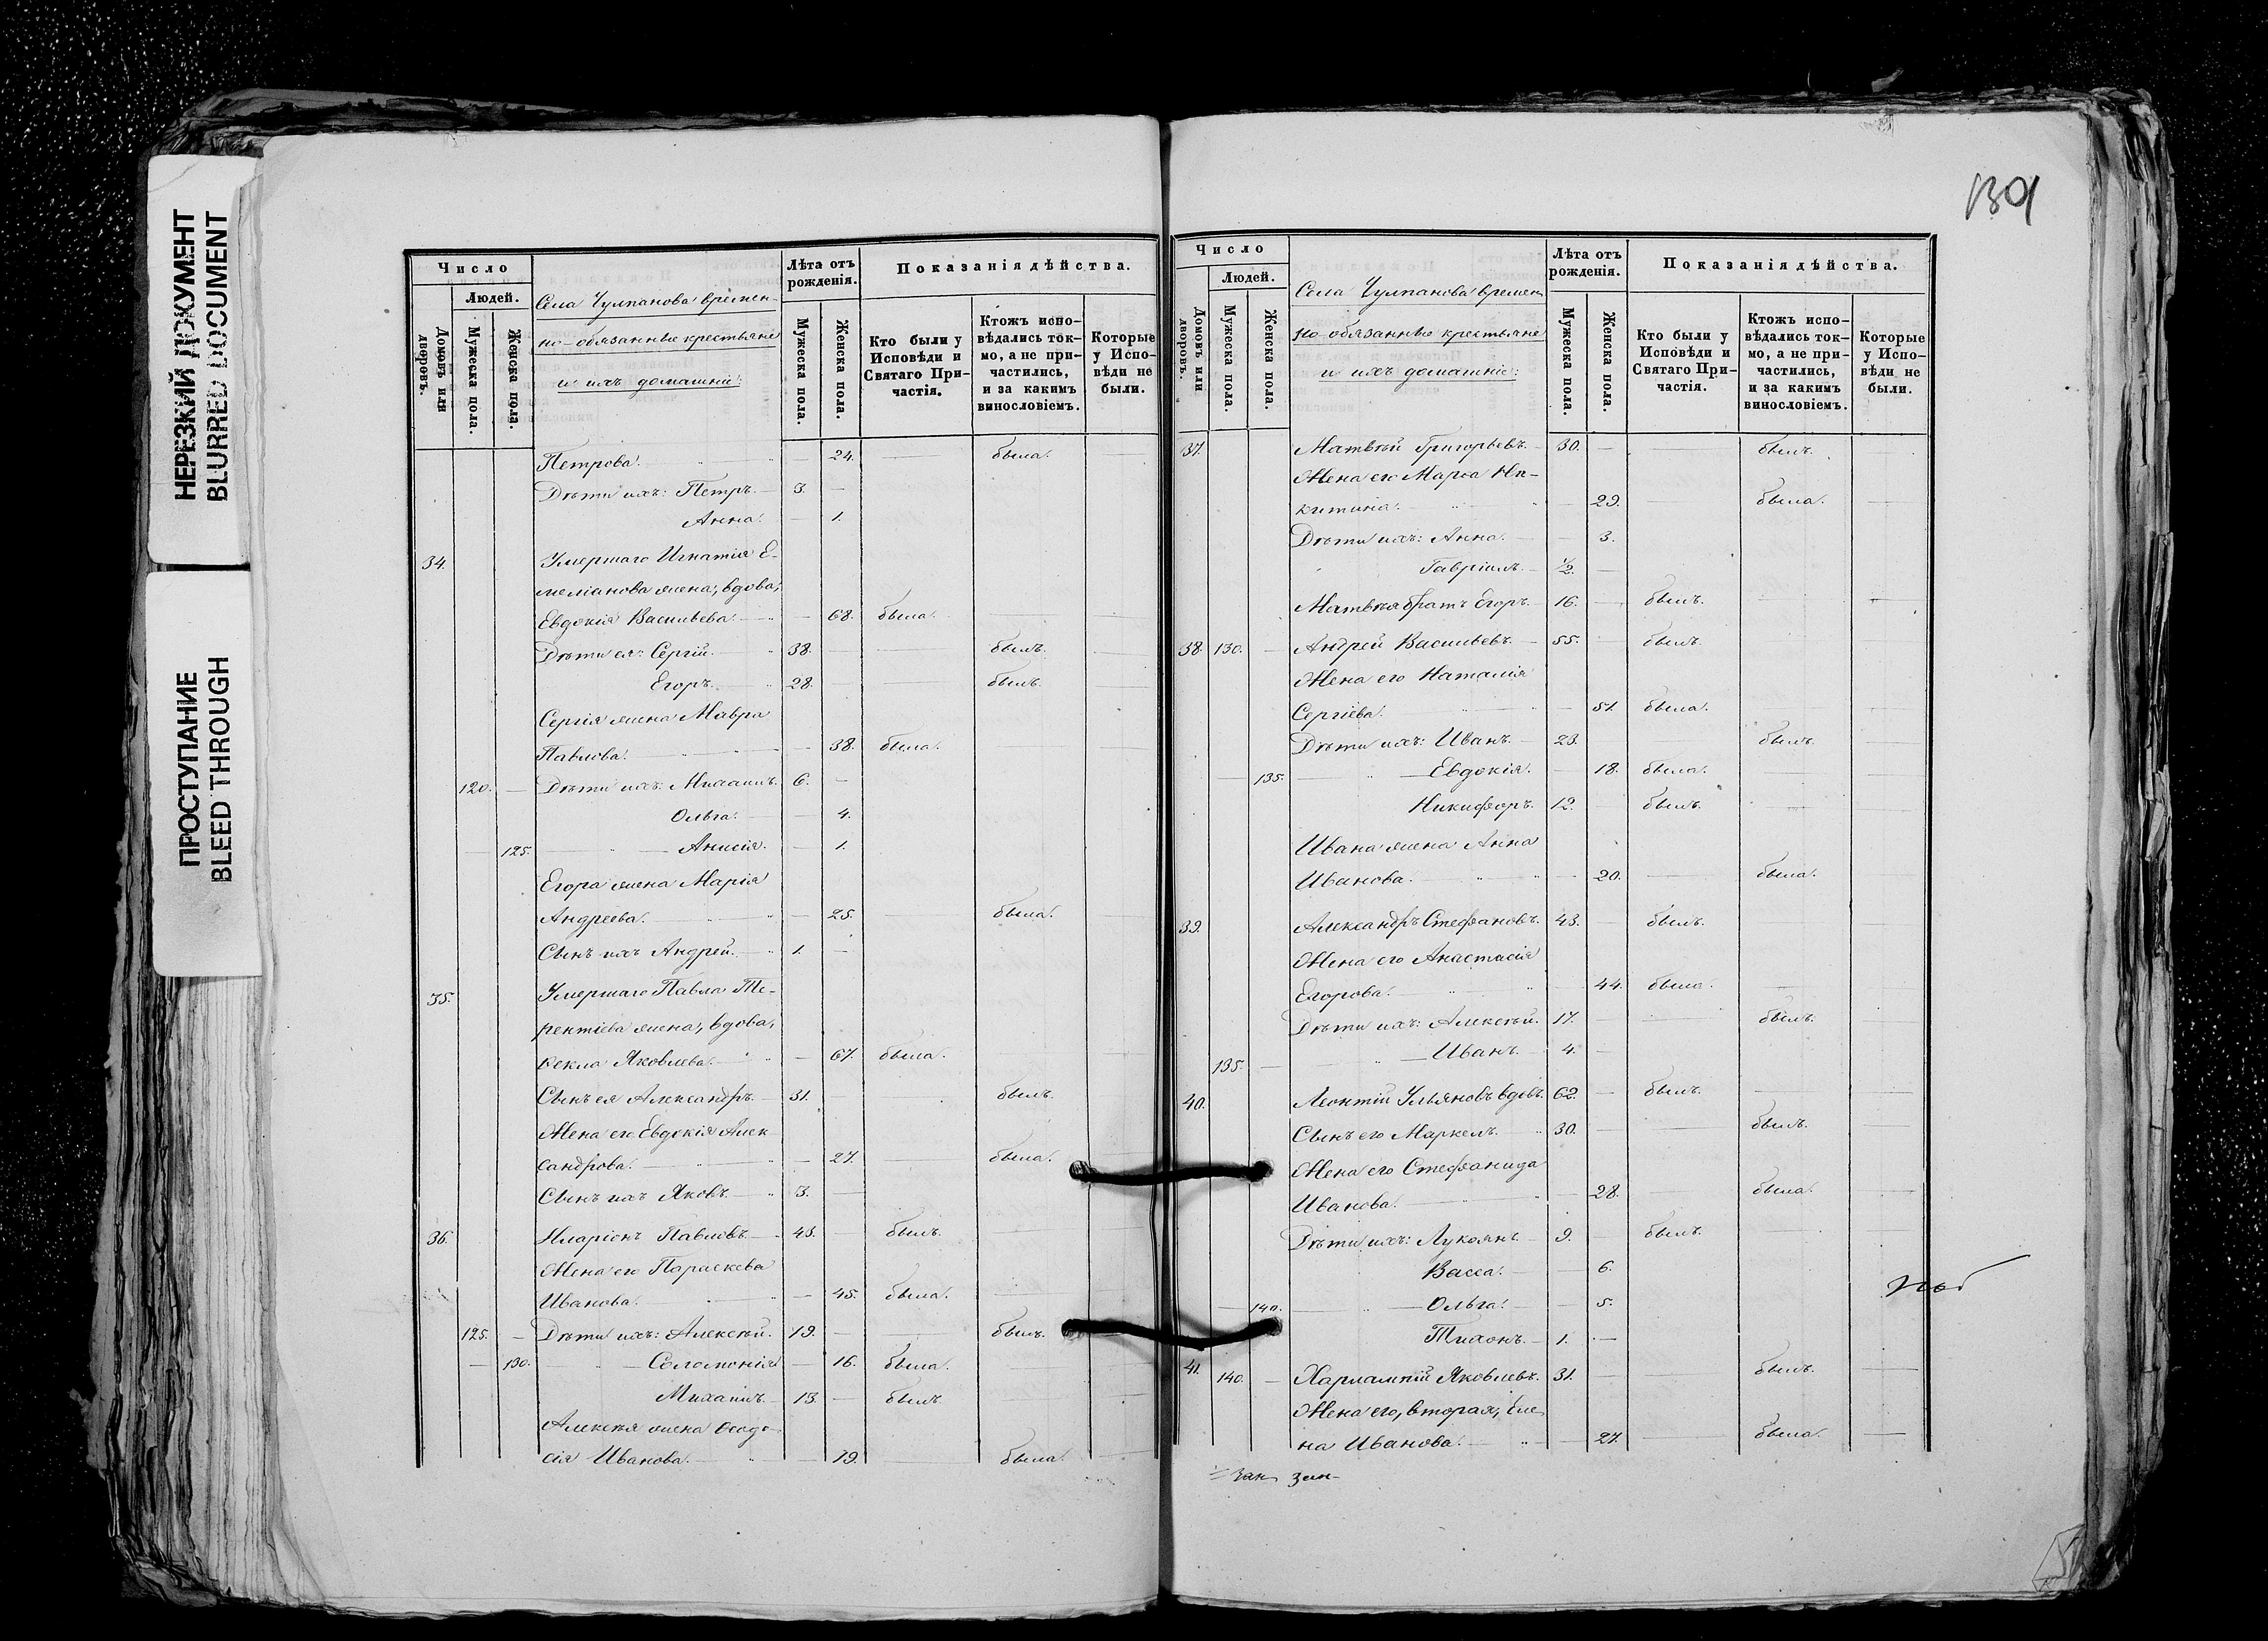 НЕРЕЗКИЙ ДОКУМЕНТ
BLURRED DOCUMENT
ПРОСТУПАНИЕ
BLEED THROUGH
Число
Людей.
Домовъ или дворовъ.
Мужеска пола.
Женска пола.
Села Чулпанова времен-
но-обязанные крестьяне
и ихъ домашніе:
Лѣта отъ рожденія.
Мужеска пола.
Женска пола.
Показанія дѣйства.
Кто были у Исповѣди и Святаго Причастія.
Ктожъ исповѣдались токмо, а не причастились, и за какимъ винословіемъ.
Которые у Исповѣди не были.
Петрова. — 24. была.
Дѣти ихъ: Петръ. 3. —
Анна. — 1.
34. Умершаго Игнатія Е-
меліанова жена, вдова,
Евдокія Васильева. — 68. была.
Дѣти ея: Сергій. 38. былъ.
Егоръ. 28. — былъ.
Сергія жена Мавра
Павлова. — 38. была.
120. — Дѣти ихъ: Михаилъ. 6. —
Ольга. — 4.
— 125. Анисія. — 1.
Егора жена Марія
Андреева. — 25. была.
Сынъ ихъ Андрей. 1. —
35. Умершаго Павла Те-
рентіева жена, вдова,
Ѳекла Яковлева. — 67. была.
Сынъ ея Александръ. 31. былъ.
Жена его Евдокія Алек
сандрова. — 27. была.
Сынъ ихъ Яковъ. 3. —
36. Иларіонъ Павловъ. 43. — былъ.
Жена его Параскева
Иванова. — 45. была.
125. — Дѣти ихъ: Алексѣй. 19. — былъ.
— 130. Соломонія — 16. была.
Михаилъ. 13. — былъ.
Алексѣя жена Ѳеодо-
сія Иванова. — 19. была.
139
Число
Людей.
Домовъ или дворовъ.
Мужеска пола.
Женска пола.
Села Чулпанова времен
но-обязанные крестьяне
и ихъ домашніе:
Лѣта отъ рожденія.
Мужеска пола.
Женска пола.
Показанія дѣйства.
Кто были у Исповѣди и Святаго Причастія.
Ктожъ исповѣдались токмо, а не причастились, и за какимъ винословіемъ.
Которые у Исповѣди не были.
37. Матвѣй Григорьевъ. 30. — былъ.
Жена его Марѳа Ни-
китина. — 29. была.
Дѣти ихъ: Анна. — 3.
Гавріилъ. 1/2. —
Матвѣя братъ Егоръ. 16. — былъ.
38. 130. — Андрей Васильевъ. 55. — былъ.
Жена его Наталія
Сергіева. — 51. была.
Дѣти ихъ: Иванъ. 23. былъ.
— 135. Евдокія. — 18. была.
Никифоръ. 12. — былъ.
Ивана жена Анна
Иванова. — 20. была.
39. Александръ Стефановъ. 43. — былъ.
Жена его Анастасія
Егорова. — 44. была.
Дѣти ихъ: Алексѣй. 17. — былъ.
135. — Иванъ. 4. —
40. Леонтій Ульяновъ вдовъ. 62. — былъ.
Сынъ его Маркелъ. 30. — былъ.
Жена его Стефанида
Иванова. — 28. была.
Дѣти ихъ: Лукіянъ. 9. — былъ.
Васса. — 6.
— 140. Ольга. — 5.
Тихонъ. 1. —
41. 140. — Харлампій Яковлевъ. 31. — былъ.
Жена его, вторая, Еле
на Иванова. — 27. была.